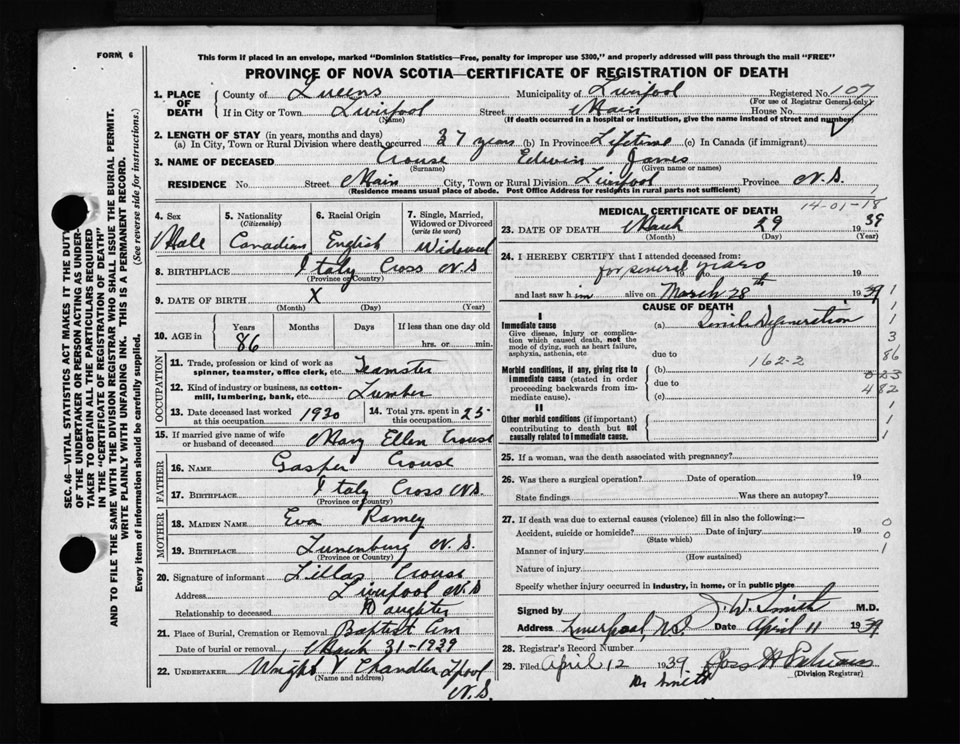 FORM 6
This form if placed in an envelope, marked "Dominion Statistics—Free, penalty for improper use $300," and properly addressed will pass through the mail "FREE"
PROVINCE OF NOVA SCOTIA—CERTIFICATE OF REGISTRATION OF DEATH
SEC. 46—VITAL STATISTICS ACT MAKES IT THE DUTY
OF THE UNDERTAKER OR PERSON ACTING AS UNDER-
TAKER TO OBTAIN ALL THE PARTICULARS REQUIRED
IN THE "CERTIFICATE OF REGISTRATION OF DEATH"
AND TO FILE THE SAME WITH THE DIVISION REGISTRAR WHO SHALL ISSUE THE BURIAL PERMIT.
WRITE PLAINLY WITH UNFADING INK. THIS IS A PERMANENT RECORD.
Every item of information should be carefully supplied. (See reverse side for instructions.)
1. PLACE OF DEATH
County of Queens Municipality of Liverpool Registered No. 107
(For use of Registrar General only)
If in City or Town Liverpool Street Main House No.
(Name) (If death occurred in a hospital or institution, give the name instead of street and number)
2. LENGTH OF STAY (in years, months and days)
(a) In City, Town or Rural Division where death occurred 37 years (b) In Province Lifetime (c) In Canada (if immigrant)
3. NAME OF DECEASED Crouse Edwin James
(Surname) (Given name or names)
RESIDENCE No. Street Main City, Town or Rural Division Liverpool Province N.S.
(Residence means usual place of abode. Post Office Address for residents in rural parts not sufficient)
4. Sex
Male
5. Nationality
(Citizenship)
Canadian
6. Racial Origin
English
7. Single, Married,
Widowed or Divorced
(write the word)
Widowed
8. BIRTHPLACE Italy Cross N.S
(Province or Country)
9. DATE OF BIRTH X
(Month) (Day) (Year)
10. AGE in Years Months Days If less than one day old
86 hrs. or min.
OCCUPATION
11. Trade, profession or kind of work as
spinner, teamster, office clerk, etc. Teamster
12. Kind of industry or business, as cotton-
mill, lumbering, bank, etc. Lumber
13. Date deceased last worked
at this occupation 1920
14. Total yrs. spent in
this occupation 25
15. If married give name of wife
or husband of deceased Mary Ellen Crouse
FATHER
16. NAME Gasper Crouse
17. BIRTHPLACE Italy Cross N.S.
(Province or Country)
MOTHER
18. MAIDEN NAME Eva Ramey
19. BIRTHPLACE Lunenburg N.S.
(Province or Country)
20. Signature of informant Lillas Crouse
Address Liverpool N.S
Relationship to deceased Daughter
21. Place of Burial, Cremation or Removal Baptist Cem
Date of burial or removal March 31-1939
22. UNDERTAKER Wright V Chandler Lpool
(Name and address) N.S.
MEDICAL CERTIFICATE OF DEATH
14-01-18
23. DATE OF DEATH March 29 1939
(Month) (Day) (Year)
24. I HEREBY CERTIFY that I attended deceased from:
for several years 19 to 19
and last saw him alive on March 28th 1939
CAUSE OF DEATH
I
Immediate cause (a) Senile Degeneration
Give disease, injury or complica-
tion which caused death, not the
mode of dying, such as heart failure,
asphyxia, asthenia, etc
due to
Morbid conditions, if any, giving rise to
immediate cause (stated in order
proceeding backwards from im-
mediate cause).
(b) 162-2
due to
(c)
II
Other morbid conditions (if important)
contributing to death but not
causally related to immediate cause.
1
1
3
86
023
482
1
1
1
25. If a woman, was the death associated with pregnancy?
26. Was there a surgical operation? Date of operation 19
State findings Was there an autopsy?
27. If death was due to external causes (violence) fill in also the following:—
Accident, suicide or homicide? Date of injury 19
(State which)
Manner of injury
(How sustained)
Nature of injury
0
0
1
Specify whether injury occurred in industry, in home, or in public place
Signed by J. W. Smith M.D.
Address Liverpool N.S. Date April 11 1939
28. Registrar's Record Number
29. Filed April 12 1939
(Division Registrar)
Dr Smith